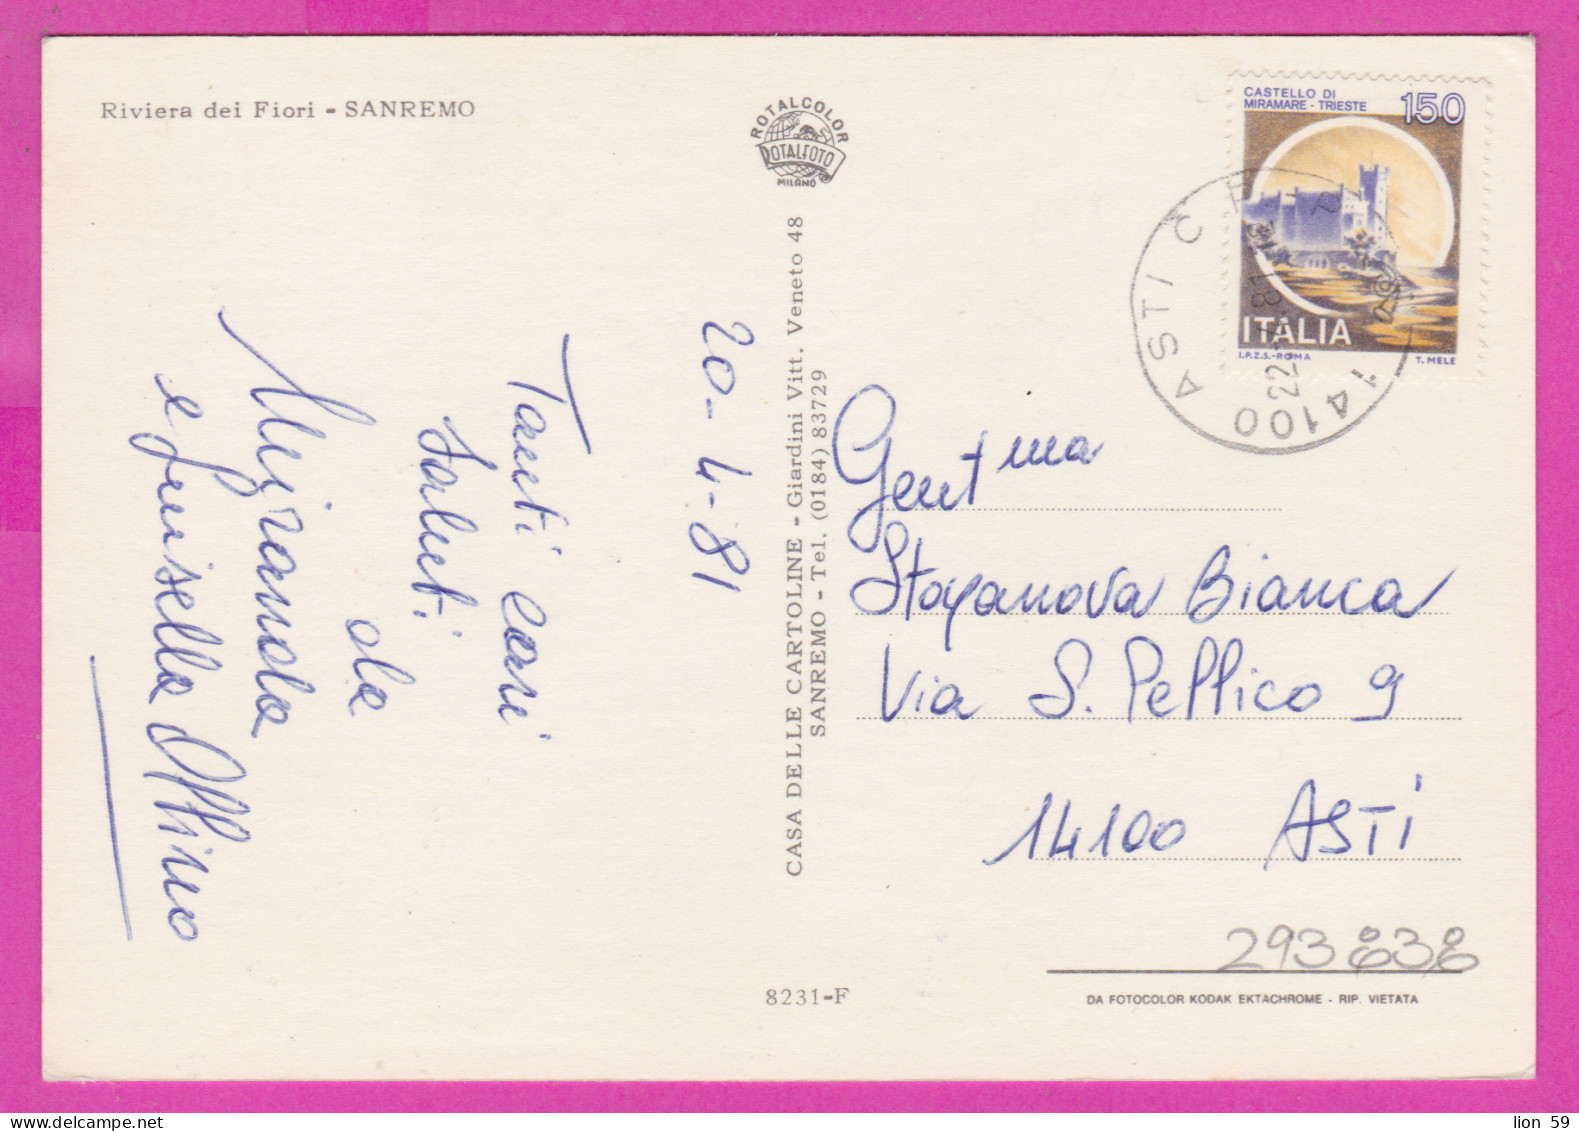 Riviera dei Fiori - SANREMO
ROTALCOLOR
ROTALFOTO
MILANO
CASTELLO DI
MIRAMARE - TRIESTE
150
ITALIA
I.P.Z.S.-ROMA
T. MELE
14100 ASTI C
22
81
20-4-81
Tanti cari
saluti
da
Mirandola
e Luisella
CASA DELLE CARTOLINE - Giardini Vitt. Veneto 48
SANREMO - Tel. (0184) 83729
Gent ma
Stoyanova Bianca
Via S. Pellico 9
14100 ASTI
293838
8231-F
DA FOTOCOLOR KODAK EKTACHROME - RIP. VIETATA
lion 59